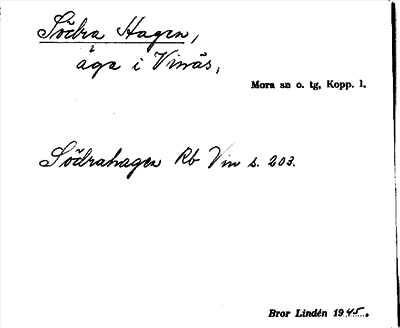 Södra Hagen,
äga i Vinäs,
Mora sn o. tg, Kopp. l.
Södrahagen Rb Vin s. 203.
Bror Lindén 1945.